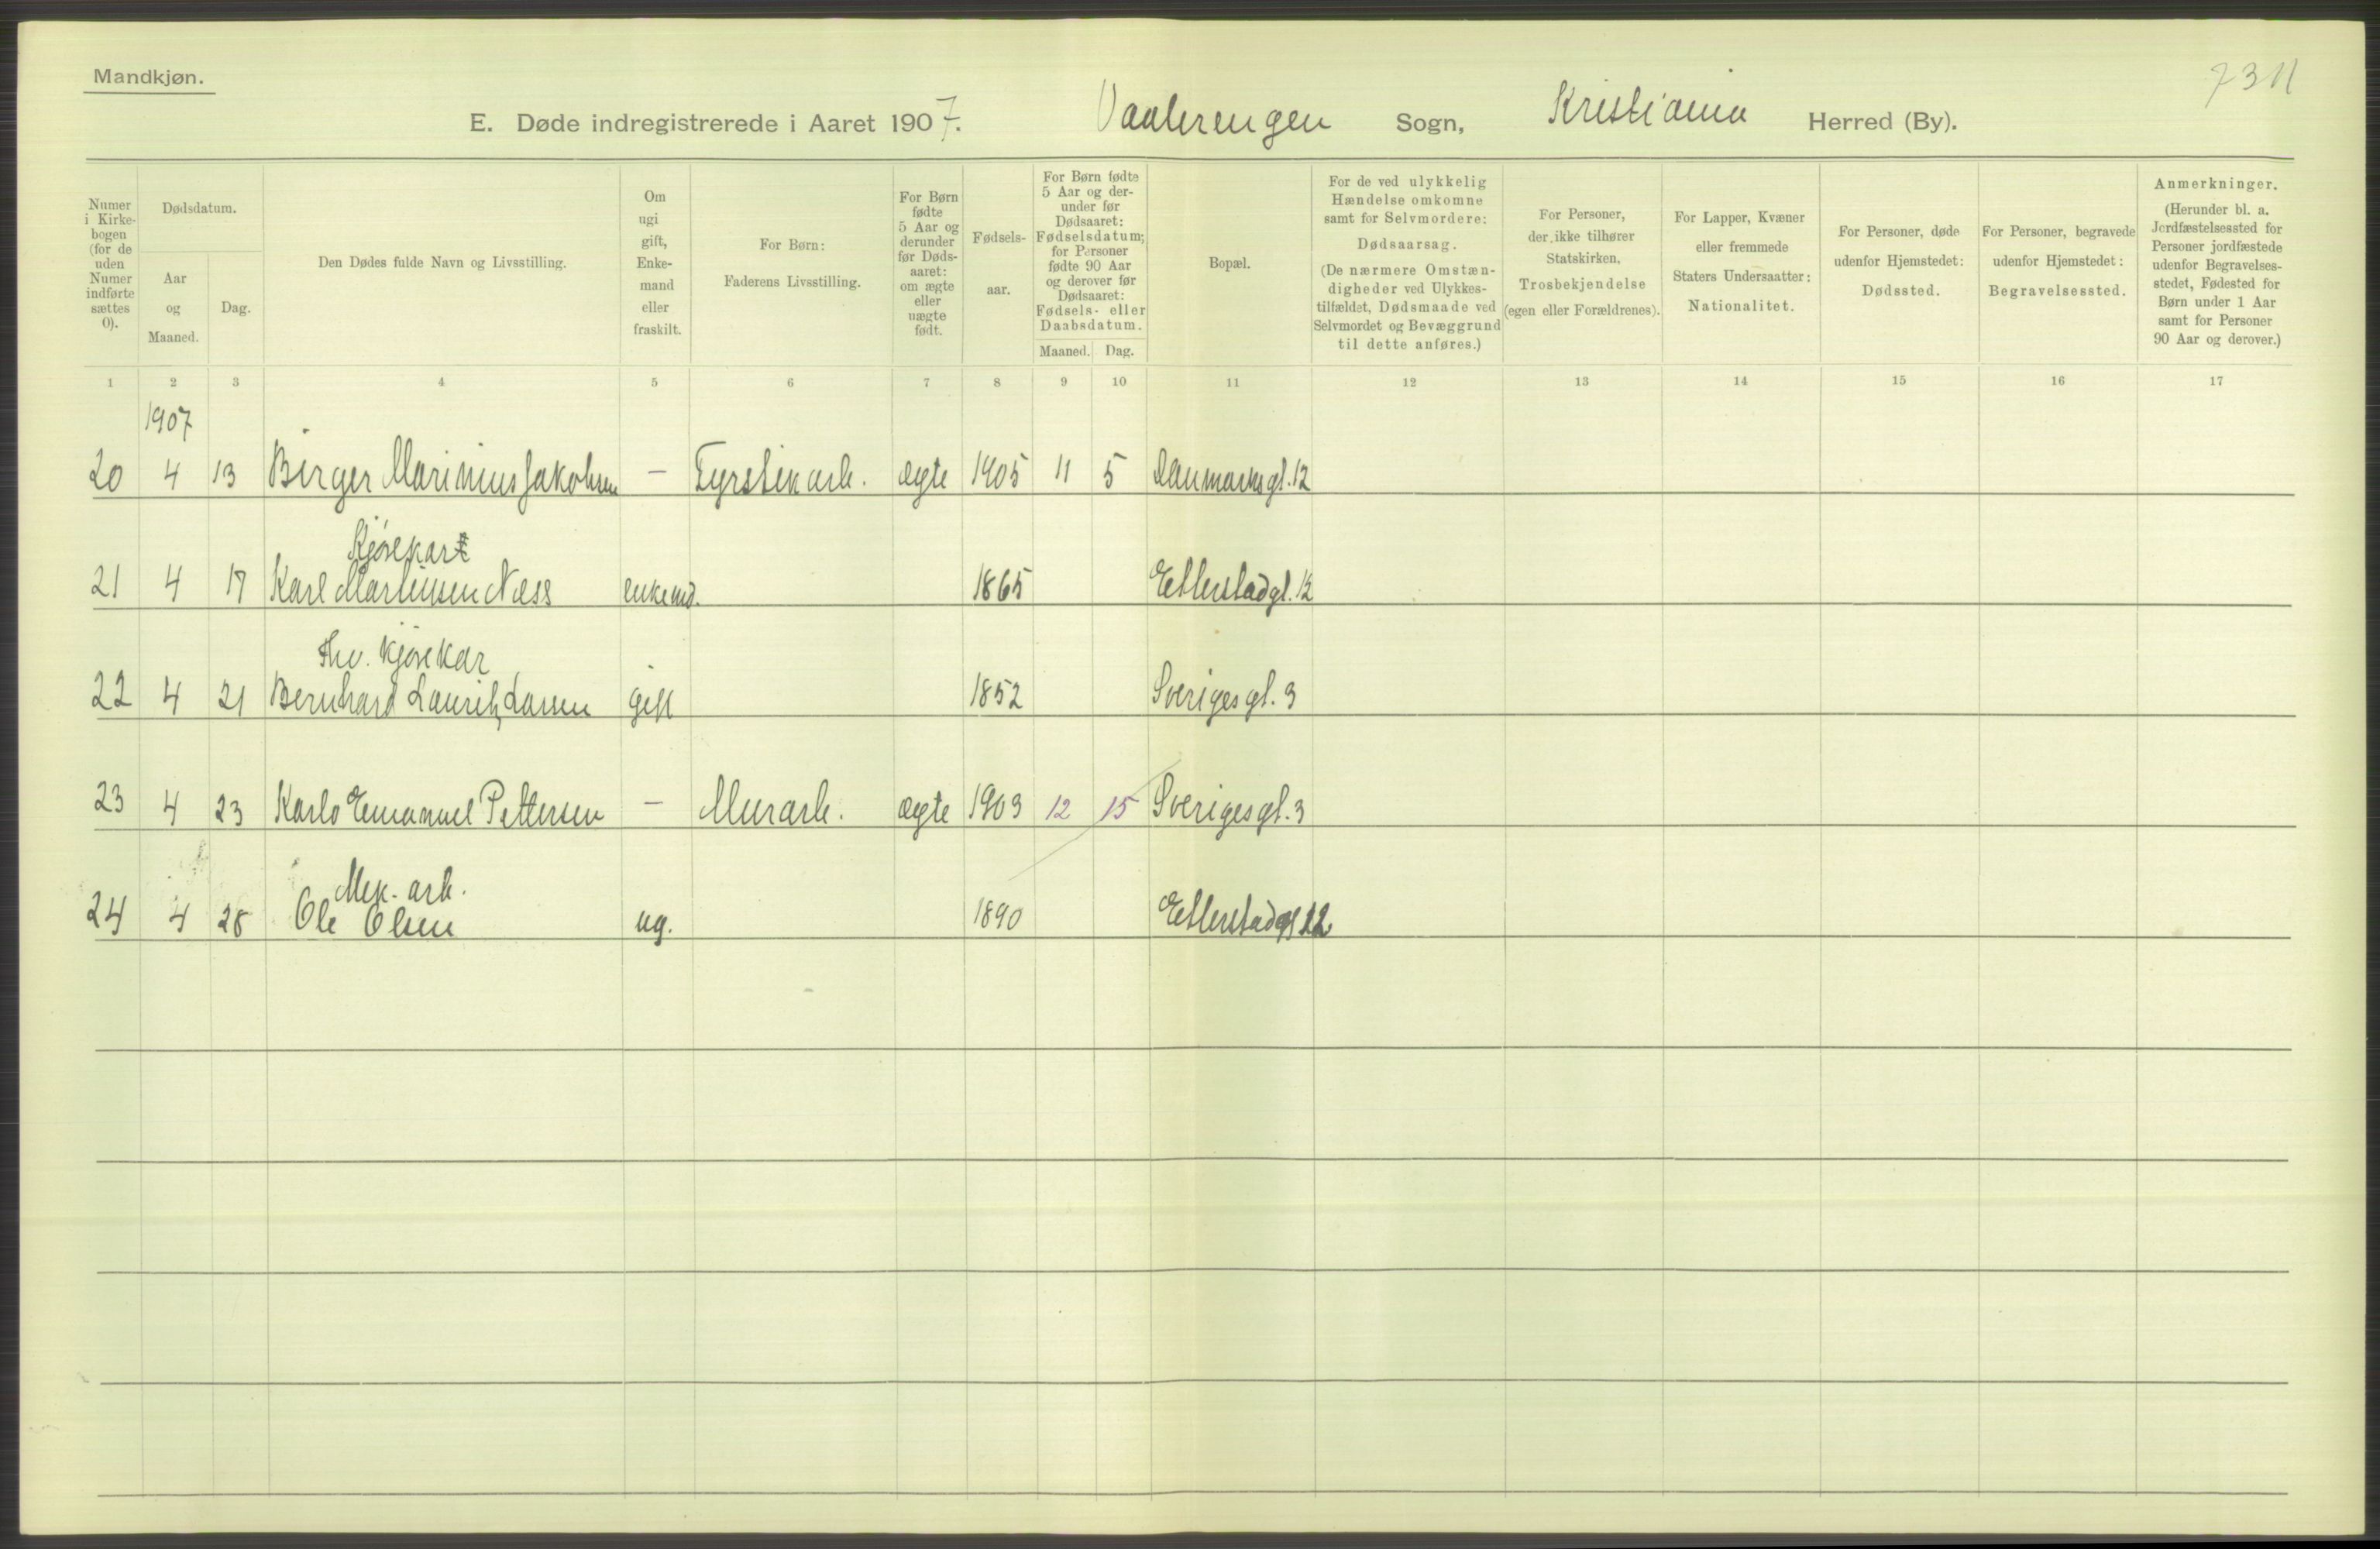 Mandkjøn.
7311
E. Døde indregistrerede i Aaret 1907. Vaalerengen Sogn, Kristiania Herred (By).
Numer i Kirkebogen (for de uden Numer indførte sættes 0).
Dødsdatum.
Aar og Maaned.
Dag.
Den Dødes fulde Navn og Livsstilling.
Om ugi gift, Enkemand eller fraskilt.
For Børn: Faderens Livsstilling.
For Børn fødte 5 Aar og derunder før Dødsaaret: om ægte eller uægte født.
Fødselsaar.
For Børn fødte 5 Aar og derunder før Dødsaaret: Fødselsdatum; for Personer fødte 90 Aar og derover før Dødsaaret: Fødsels- eller Daabsdatum.
Maaned. Dag.
Bopæl.
For de ved ulykkelig Hændelse omkomne samt for Selvmordere: Dødsaarsag. (De nærmere Omstændigheder ved Ulykkestilfældet, Dødsmaade ved Selvmordet og Bevæggrund til dette anføres.)
For Personer, der ikke tilhører Statskirken, Trosbekjendelse (egen eller Forældrenes).
For Lapper, Kvæner eller fremmede Staters Undersaatter: Nationalitet.
For Personer, døde udenfor Hjemstedet: Dødssted.
For Personer, begravede udenfor Hjemstedet: Begravelsessted.
Anmerkninger. (Herunder bl. a. Jordfæstelsessted for Personer jordfæstede udenfor Begravelsesstedet, Fødested for Børn under 1 Aar samt for Personer 90 Aar og derover.)
1 2 3 4 5 6 7 8 9 10 11 12 13 14 15 16 17
1907
20 4 13 Birger Marinius Jakobsen — Fyrstikarb. ægte 1905 11 5 Danmarksgt. 12
Kjørekar
21 4 17 Karl Martinsen Næss enkemd. 1865 Etterstadgt. 12
Fhv. kjørekar
22 4 21 Bernhard Lauritz Larsen gift 1852 Sverigesgt. 3
23 4 23 Karlo Emanuel Pettersen — Murarb. ægte 1903 12 15 Sverigesgt. 3
Mek. arb.
24 4 28 Ole Olsen ug. 1890 Etterstadgt 12